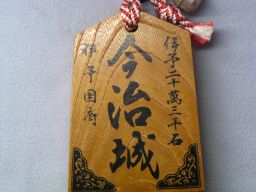 伊予二十萬三千石
今治城
伊予国府